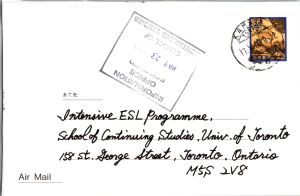 INFORMATION
OFFICE
MAY 23
SCHOOL OF
CONTINUING STUDIES
あて先
Intensive ESL Programme,
School of Continuing Studies, Univ. of Toronto
158 St. George Street, Toronto, Ontario
M5S 2V8
Air Mail